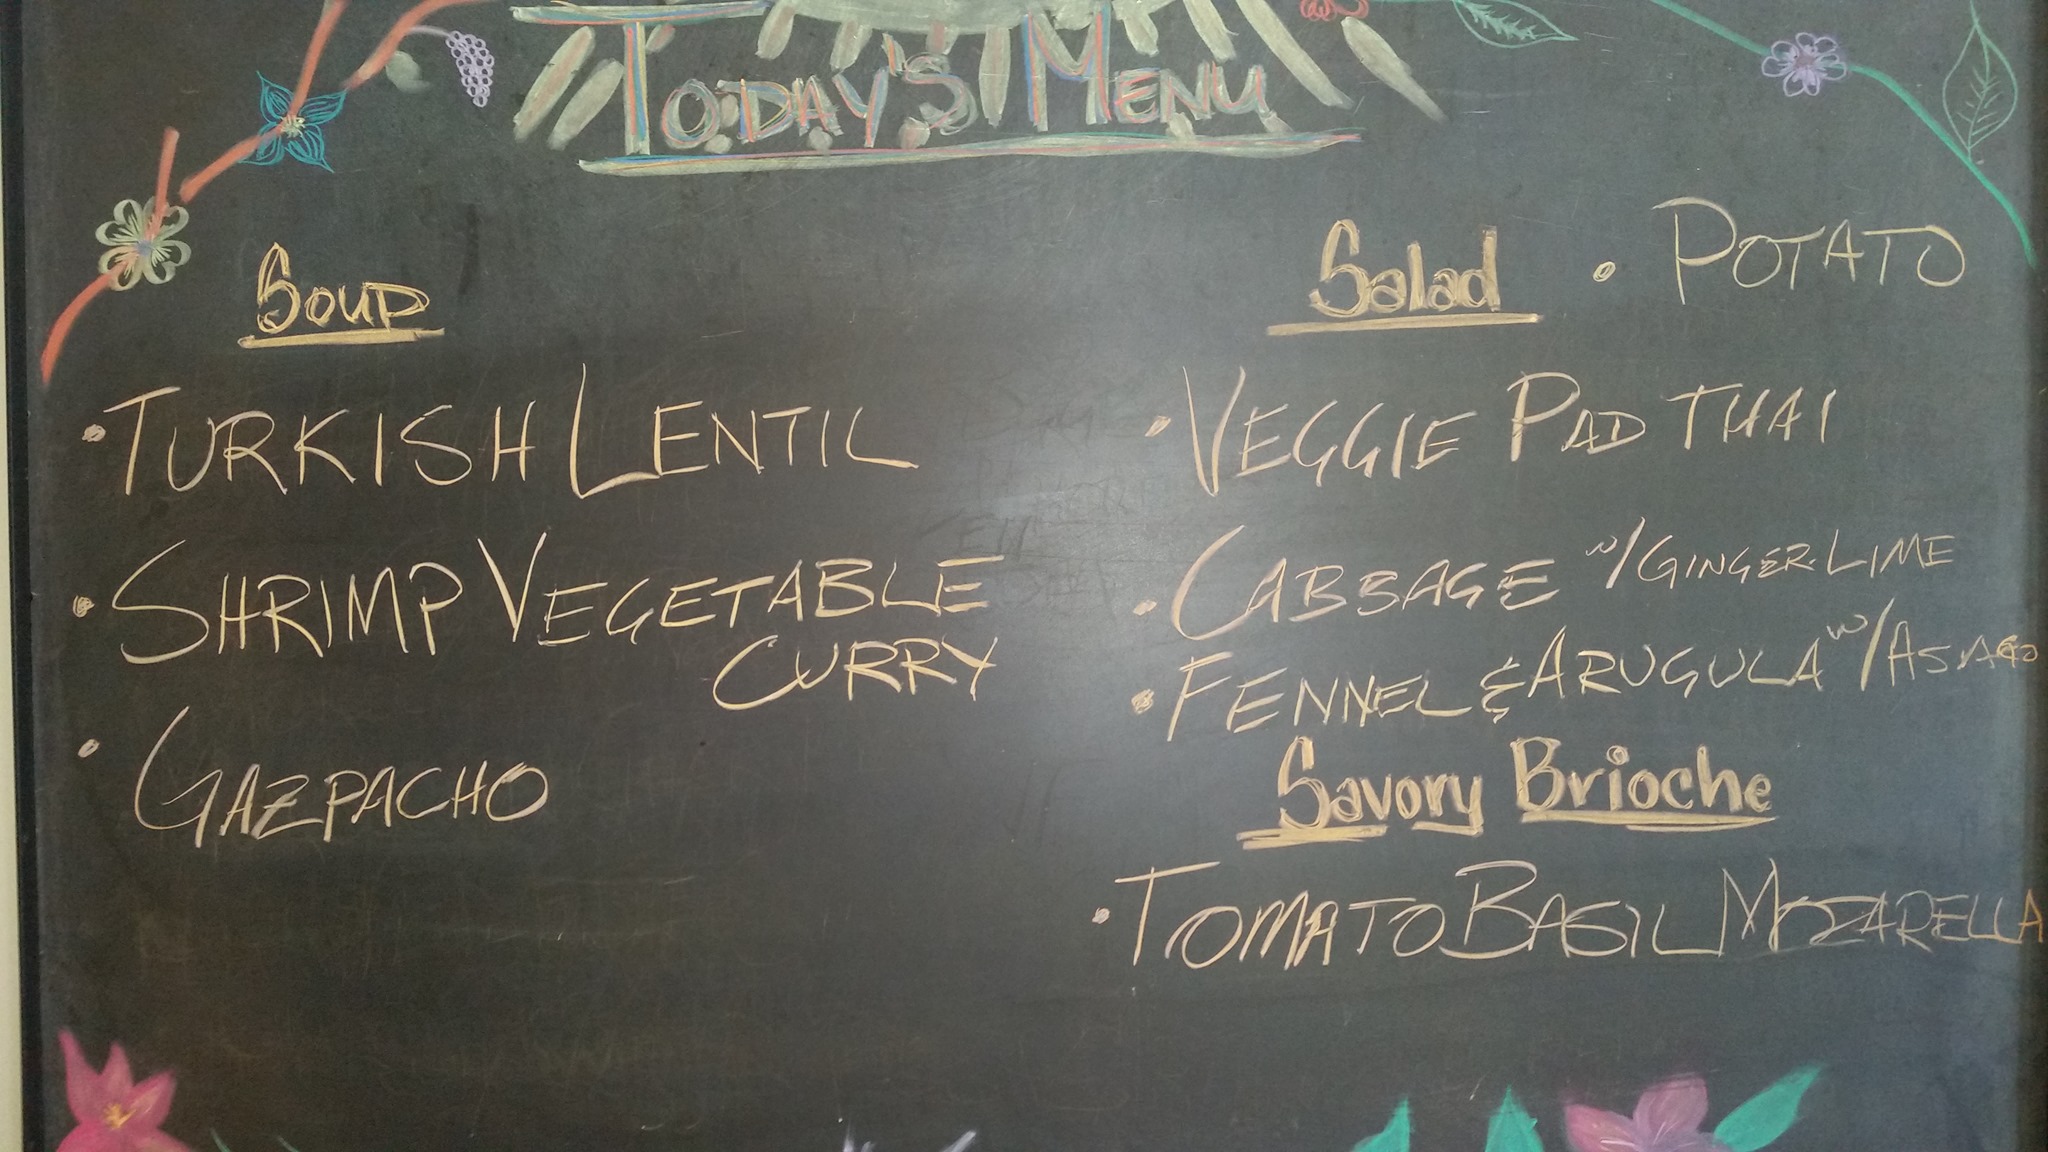 TODAY'S MENU
Soup
• TURKISH LENTIL
• SHRIMP VEGETABLE
CURRY
• GAZPACHO
Salad • POTATO
• VEGGIE PAD THAI
• CABBAGE W/GINGER·LIME
• FENNEL & ARUGULA W/ASIAGO
Savory Brioche
• TOMATO BASIL MOZZARELLA